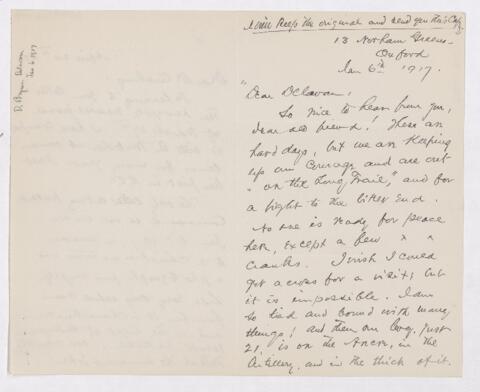 I will keep the original and send you this Copy
13 Norham Gardens
Oxford
Jan 6th 1917.
"Dear Delavan,
So nice to hear from you,
dear old friend! These are
hard days, but we are keeping
up our Courage and are out
"on the Long Trail," and for
a fight to the bitter End.
No one is ready for peace
here, except a few x x
cranks. I wish I could
get across for a visit; but
it is impossible. I am
so tied and bound with many
things! and then our boy, just
21, is on the Ancre, in the
Artillery, and in the thick of it.
Jan 6 1917